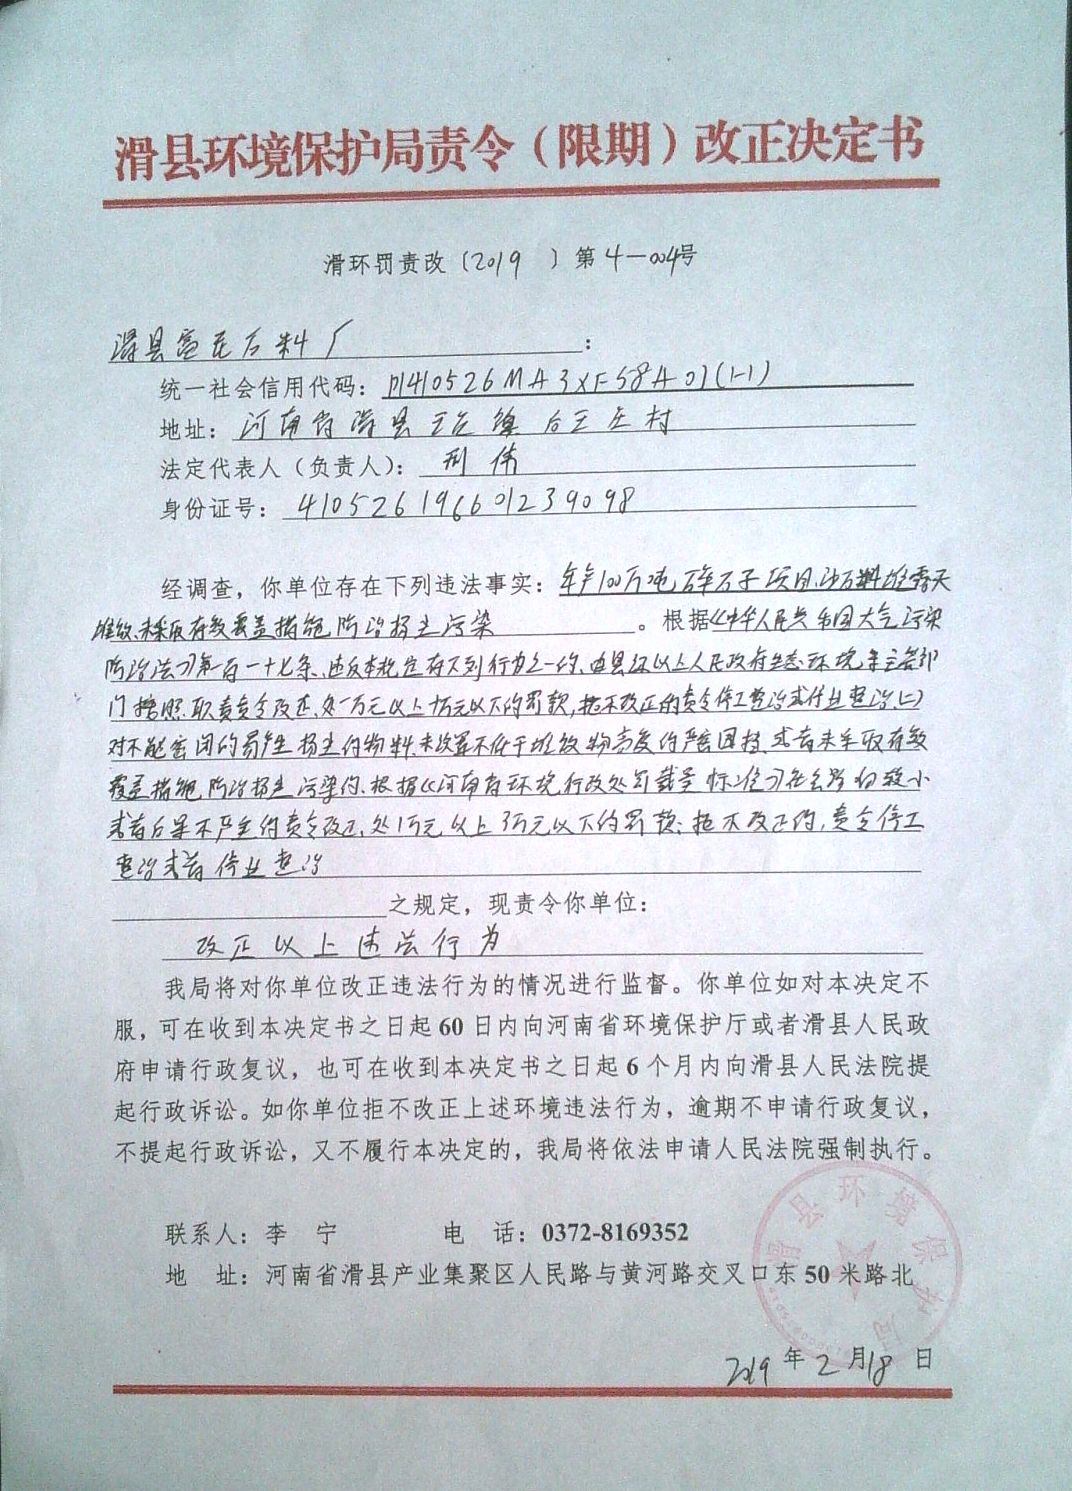 滑县环境保护局责令（限期）改正决定书
滑环罚责改（2019 ）第4-004号
滑县石料厂：
统一社会信用代码：410526MA3XF58A01(1-1)
地址：河南省滑县镇后王庄村
法定代表人（负责人）：刑伟
身份证号：410526196601239098
经调查，你单位存在下列违法事实：年产100万吨碎石子项目沙石料堆露天
堆放，未采取有效覆盖措施防治扬尘污染。根据《中华人民共和国大气污染
防治法》第一百一十七条、违反本规定有下列行为之一的、由县级以上人民政府生态环境等主管部
门按照职责责令改正、处一万元以上十万元以下的罚款，拒不改正的责令停工整治或停业整治（二）
对不能密闭的易产生扬尘的物料，未设置不低于堆放物高度的严密围挡、或者未采取有效
覆盖措施防治扬尘污染的、根据《河南省环境行政处罚裁量标准》社会影响较小
或者后果不严重的责令改正，处1万元以上3万元以下的罚款；拒不改正的，责令停工
整治或者停业整治
之规定，现责令你单位：
改正以上违法行为
我局将对你单位改正违法行为的情况进行监督。你单位如对本决定不
服，可在收到本决定书之日起60日内向河南省环境保护厅或者滑县人民政
府申请行政复议，也可在收到本决定书之日起6个月内向滑县人民法院提
起行政诉讼。如你单位拒不改正上述环境违法行为，逾期不申请行政复议，
不提起行政诉讼，又不履行本决定的，我局将依法申请人民法院强制执行。
联系人：李 宁 电 话：0372-8169352
地 址：河南省滑县产业集聚区人民路与黄河路交叉口东50米路北
滑县环境保护局
2019年2月18日